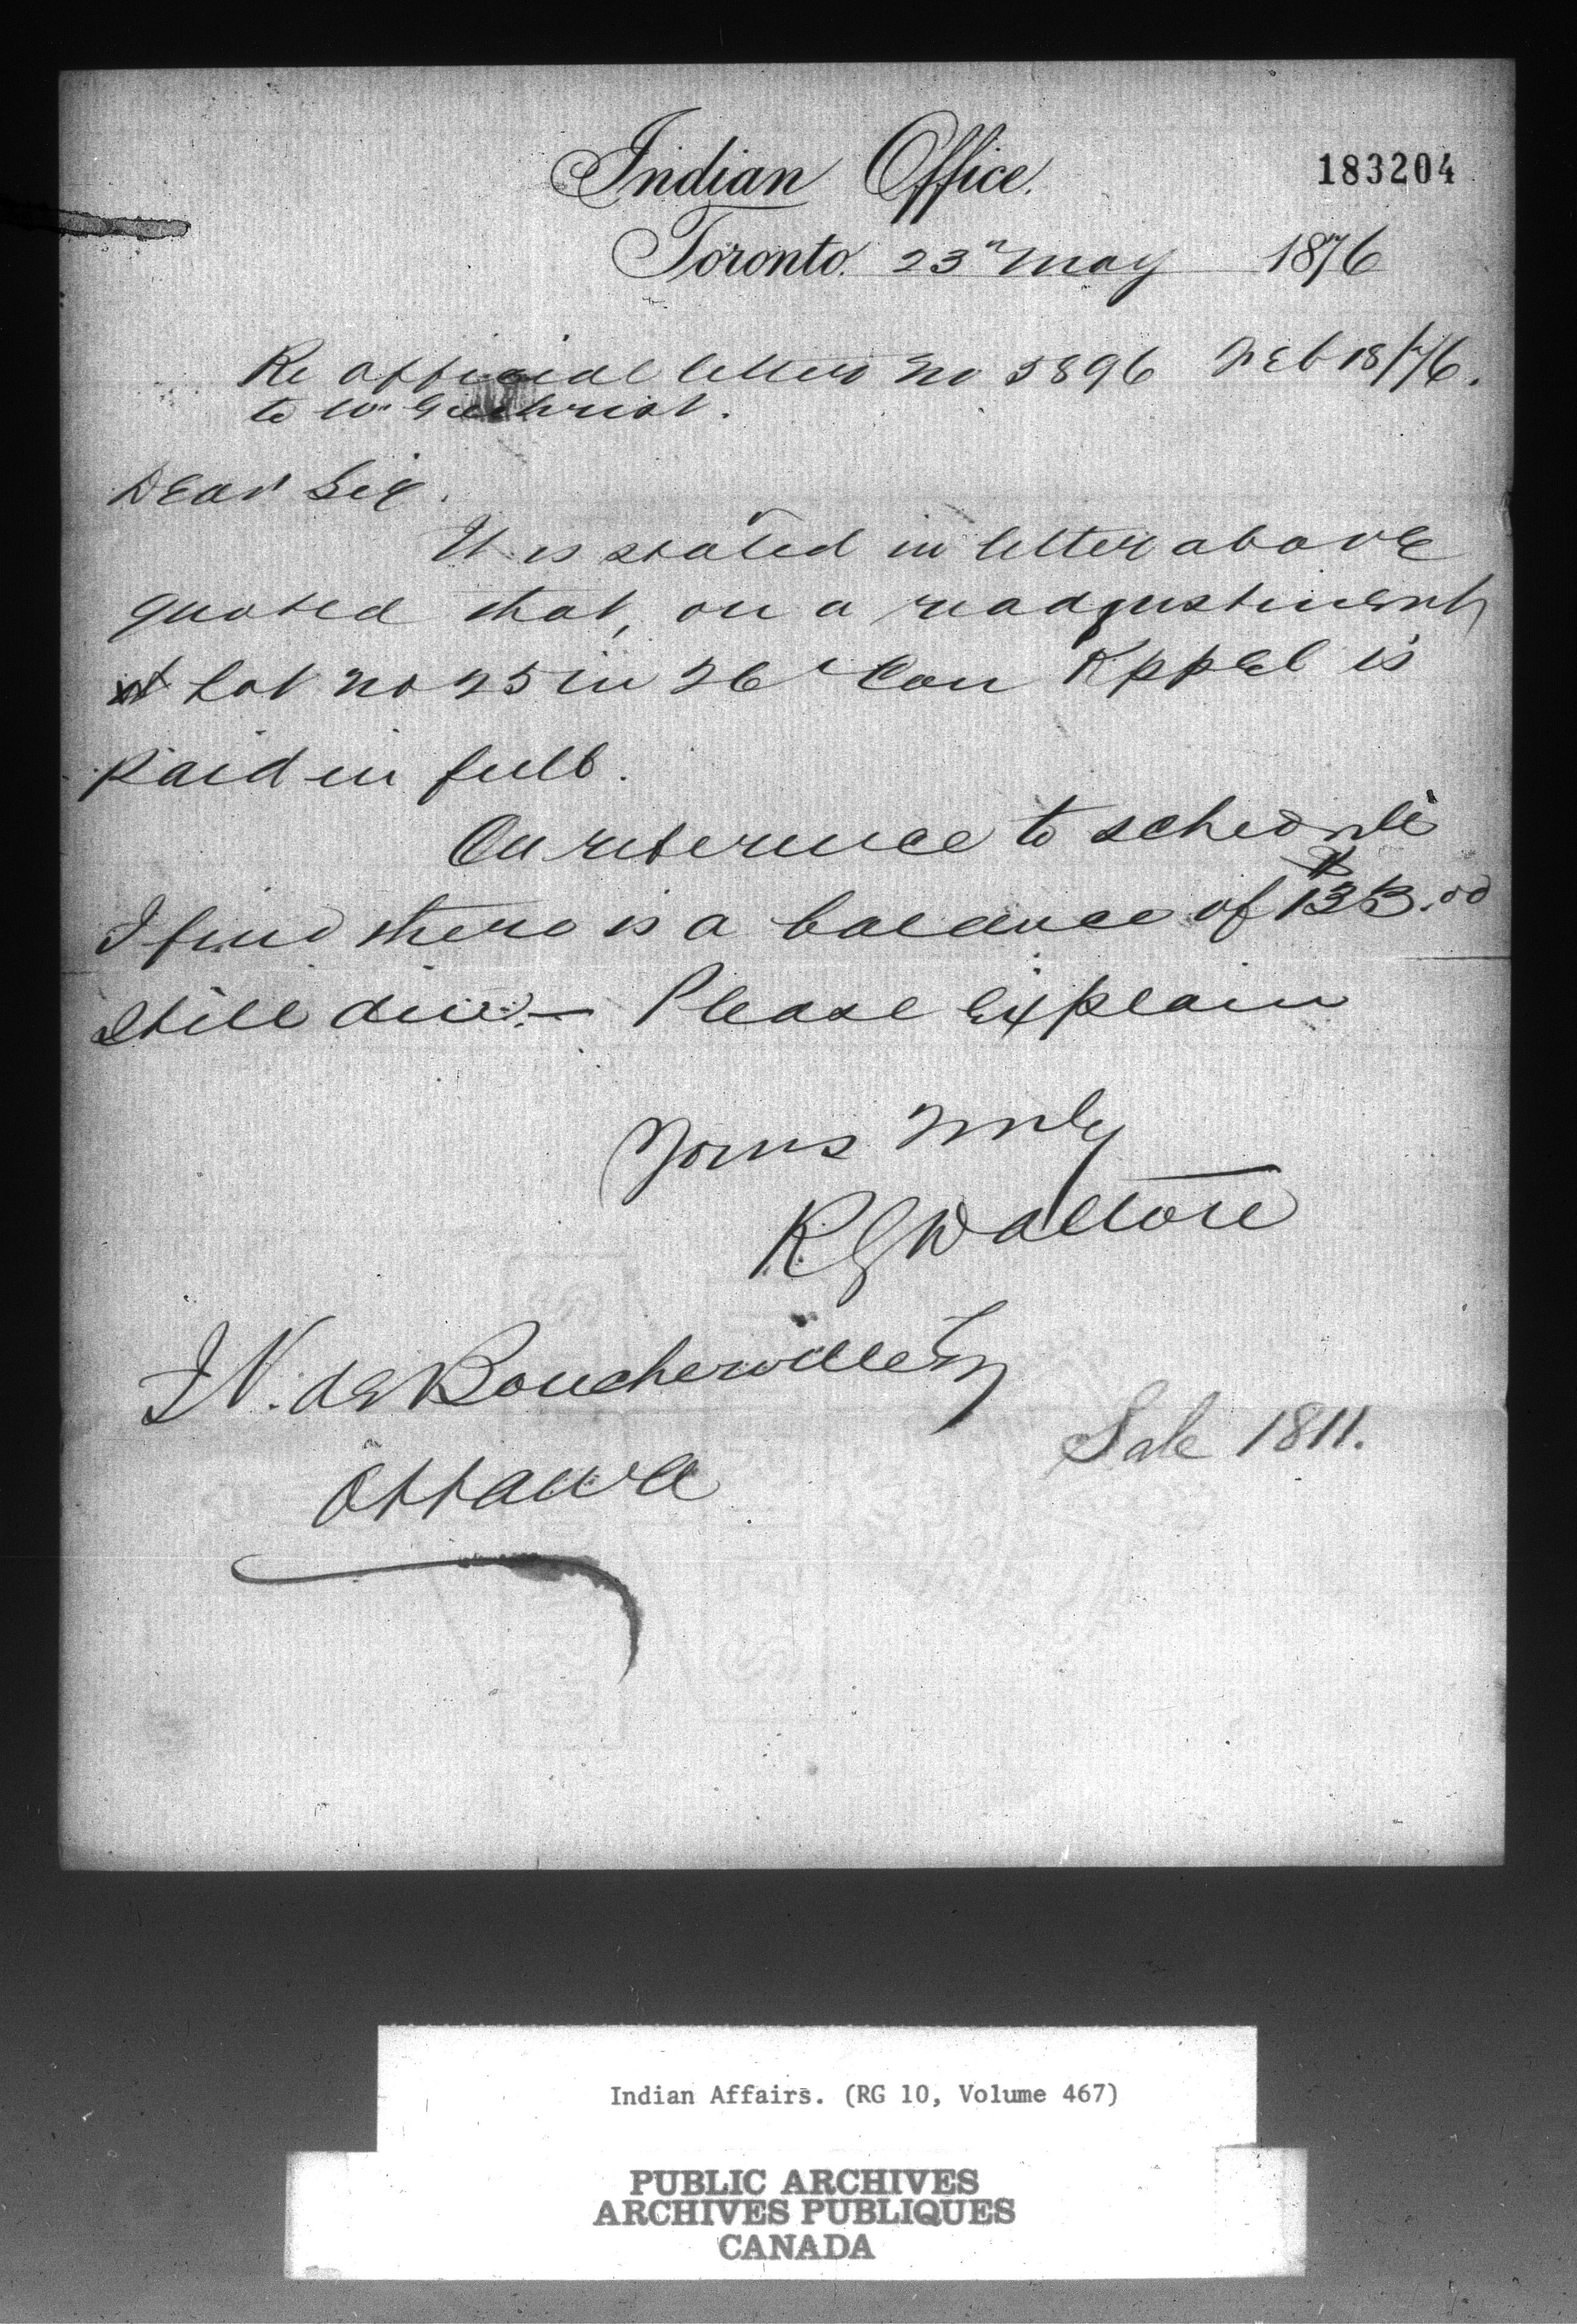 Indian Office.
183204
Toronto. 23rd May 1876
Re official letter No 5896 Feb 18/76.
to Wm Gilchrist.
Dear Sir.
It is stated in letter above
quoted that, on a readjustment
Lot No 25 in 26th Con Keppel is
paid in full.
On reference to schedule
I find there is a balance of $133.00
still due.— Please Explain
Yours Truly
R G Dalton
J V. de Boucherville Esq
Ottawa
Sale 1811.
Indian Affairs. (RG 10, Volume 467)
PUBLIC ARCHIVES
ARCHIVES PUBLIQUES
CANADA